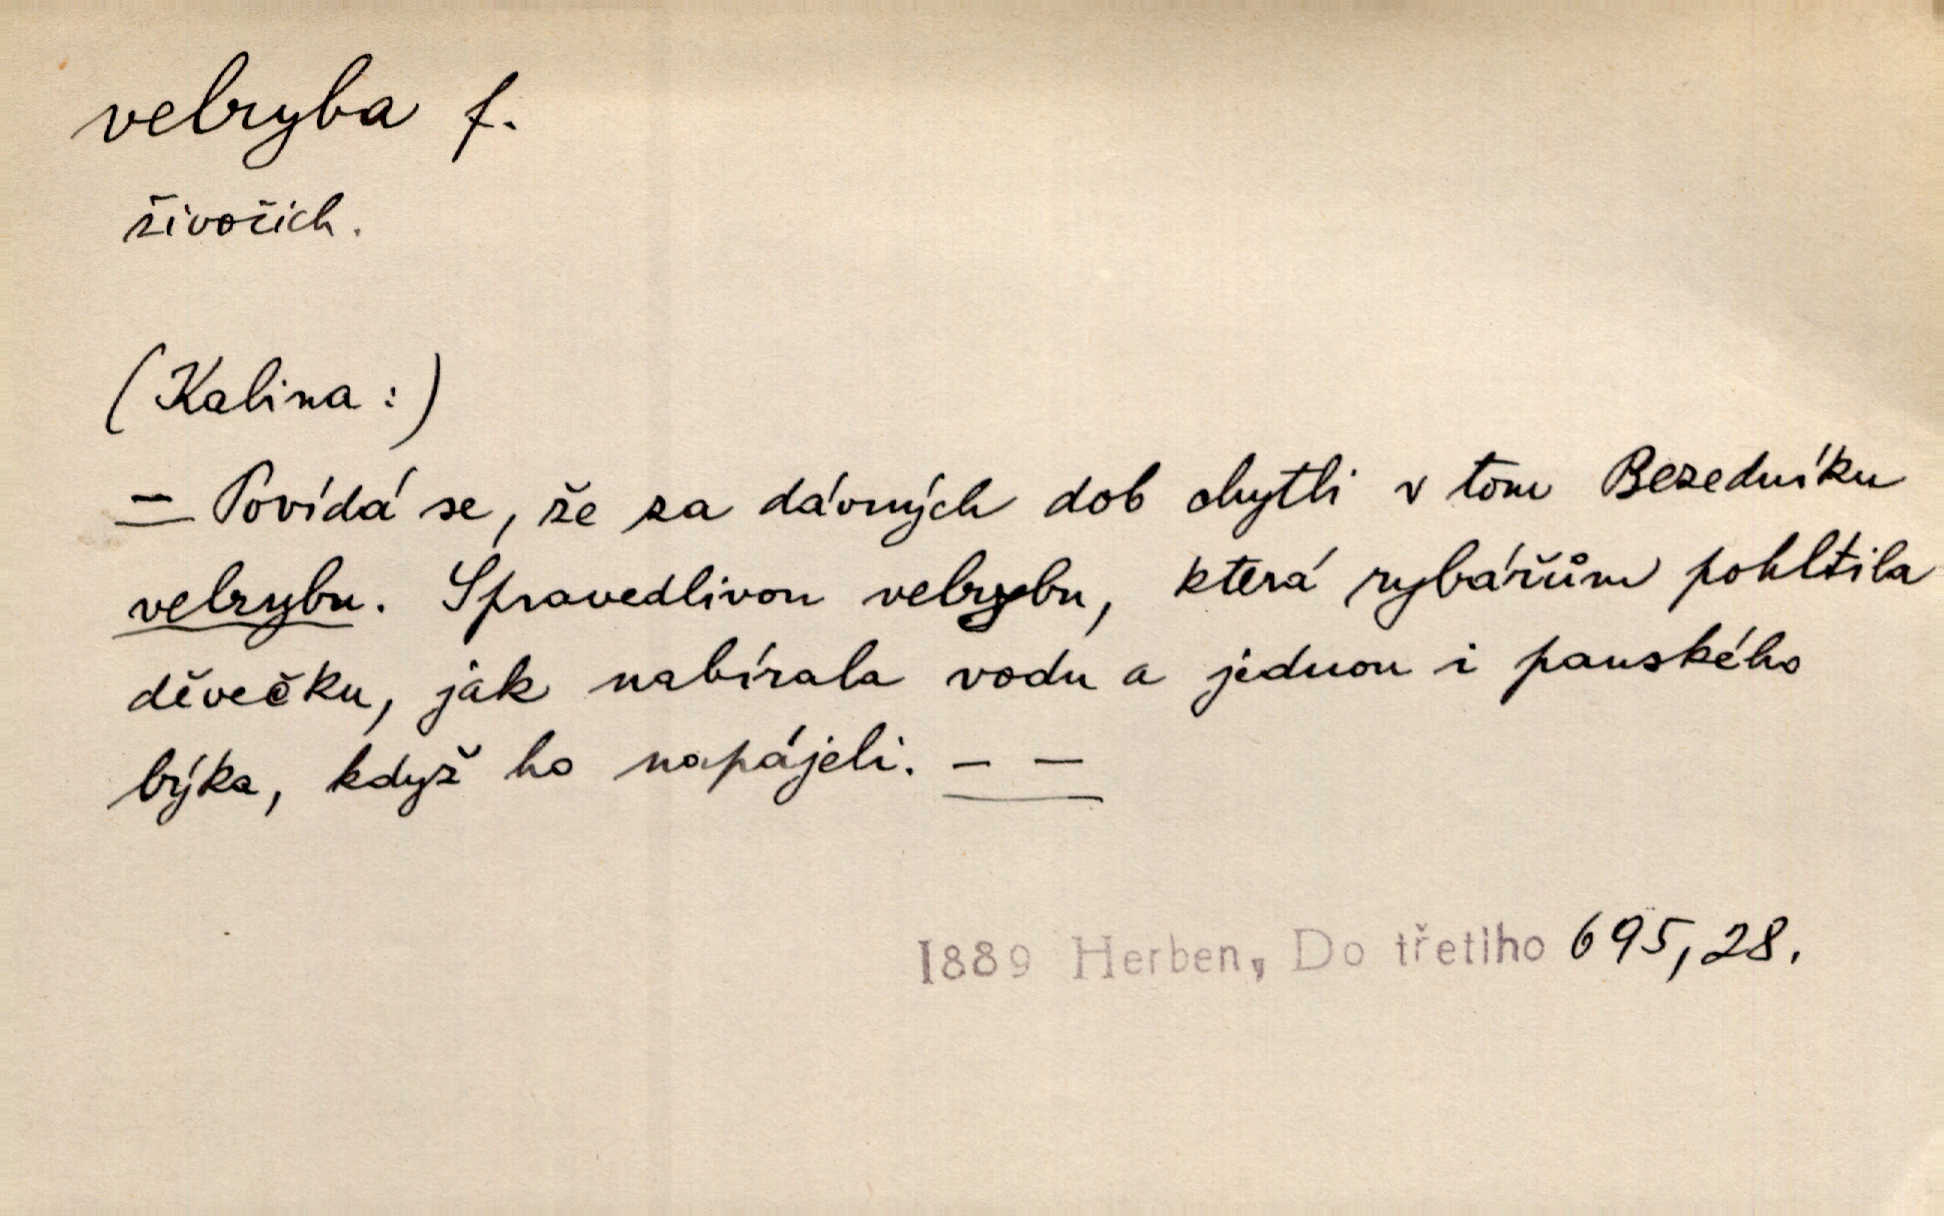 velryba f.
živočich.
(Kalina:)
– Povídá se, že za dávných dob chytli v tom Bezedníku
velrybu. Spravedlivou velrybu, která rybářům pohltila
děvečku, jak nabírala vodu a jednou i panského
býka, když ho napájeli. – –
1889 Herben, Do třetího 695,28.